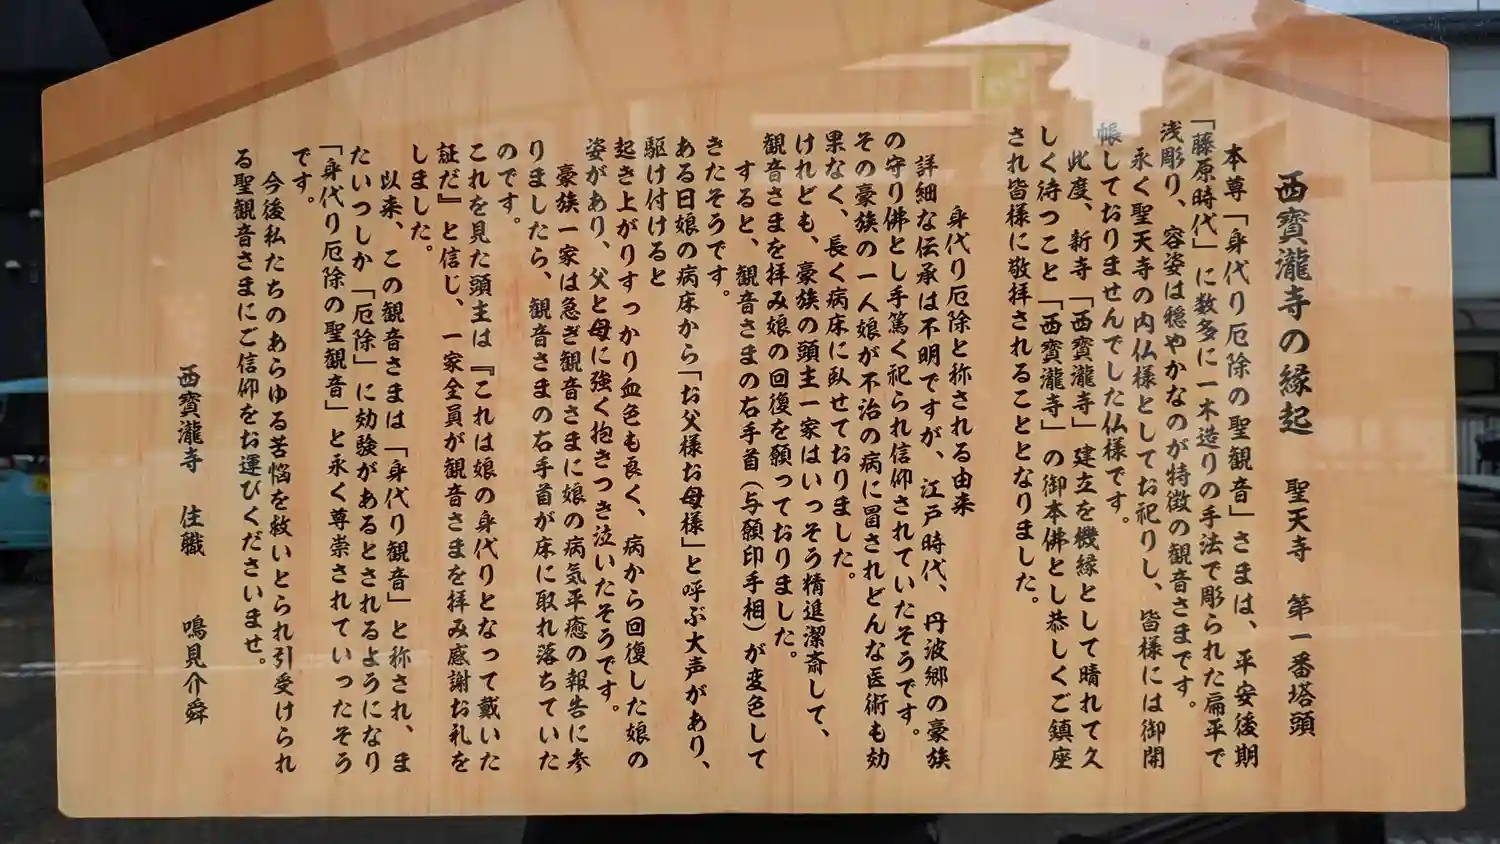 西寳瀧寺の縁起　聖天寺　第一番塔頭
本尊「身代り厄除の聖観音」さまは、平安後期
「藤原時代」に数多に一木造りの手法で彫られた扁平で
浅彫り、容姿は穏やかなのが特徴の観音さまです。
永く聖天寺の内仏様としてお祀りし、皆様には御開
帳しておりませんでした仏様です。
此度、新寺「西寳瀧寺」建立を機縁として晴れて久
しく待つこと「西寳瀧寺」の御本佛とし恭しくご鎮座
され皆様に敬拝されることとなりました。
身代り厄除と称される由来
詳細な伝承は不明ですが、江戸時代、丹波郷の豪族
の守り佛とし手篤く祀られ信仰されていたそうです。
その豪族の一人娘が不治の病に冒されどんな医術も効
果なく、長く病床に臥せておりました。
けれども、豪族の頭主一家はいっそう精進潔斎して、
観音さまを拝み娘の回復を願っておりました。
すると、観音さまの右手首（与願印手相）が変色して
きたそうです。
ある日娘の病床から「お父様お母様」と呼ぶ大声があり、
駆け付けると
起き上がりすっかり血色も良く、病から回復した娘の
姿があり、父と母に強く抱きつき泣いたそうです。
豪族一家は急ぎ観音さまに娘の病気平癒の報告に参
りましたら、観音さまの右手首が床に取れ落ちていた
のです。
これを見た頭主は『これは娘の身代りとなって戴いた
証だ』と信じ、一家全員が観音さまを拝み感謝お礼を
しました。
以来、この観音さまは「身代り観音」と称され、ま
たいつしか「厄除」に効験があるとされるようになり
「身代り厄除の聖観音」と永く尊崇されていったそう
です。
今後私たちのあらゆる苦悩を救いとられ引受けられ
る聖観音さまにご信仰をお運びくださいませ。
西寳瀧寺　住職　鳴見介舜